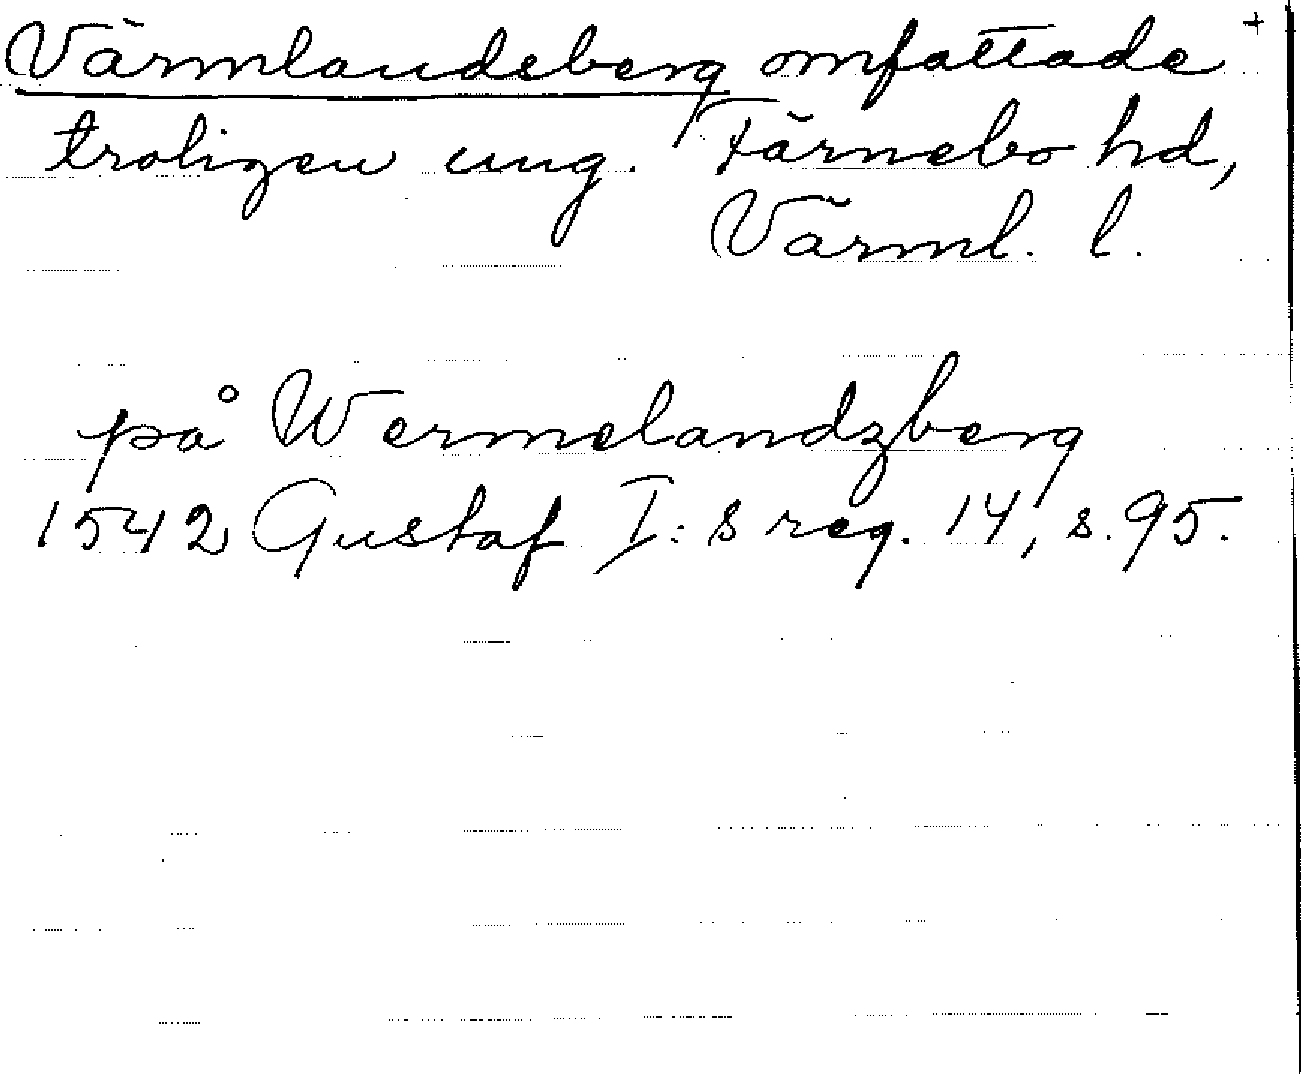 Värmlandsberg omfattade +
troligen ung. Färnebo hd,
Värml. l.
på Wermelandzberg
1542 Gustaf I:s reg. 14, s. 95.